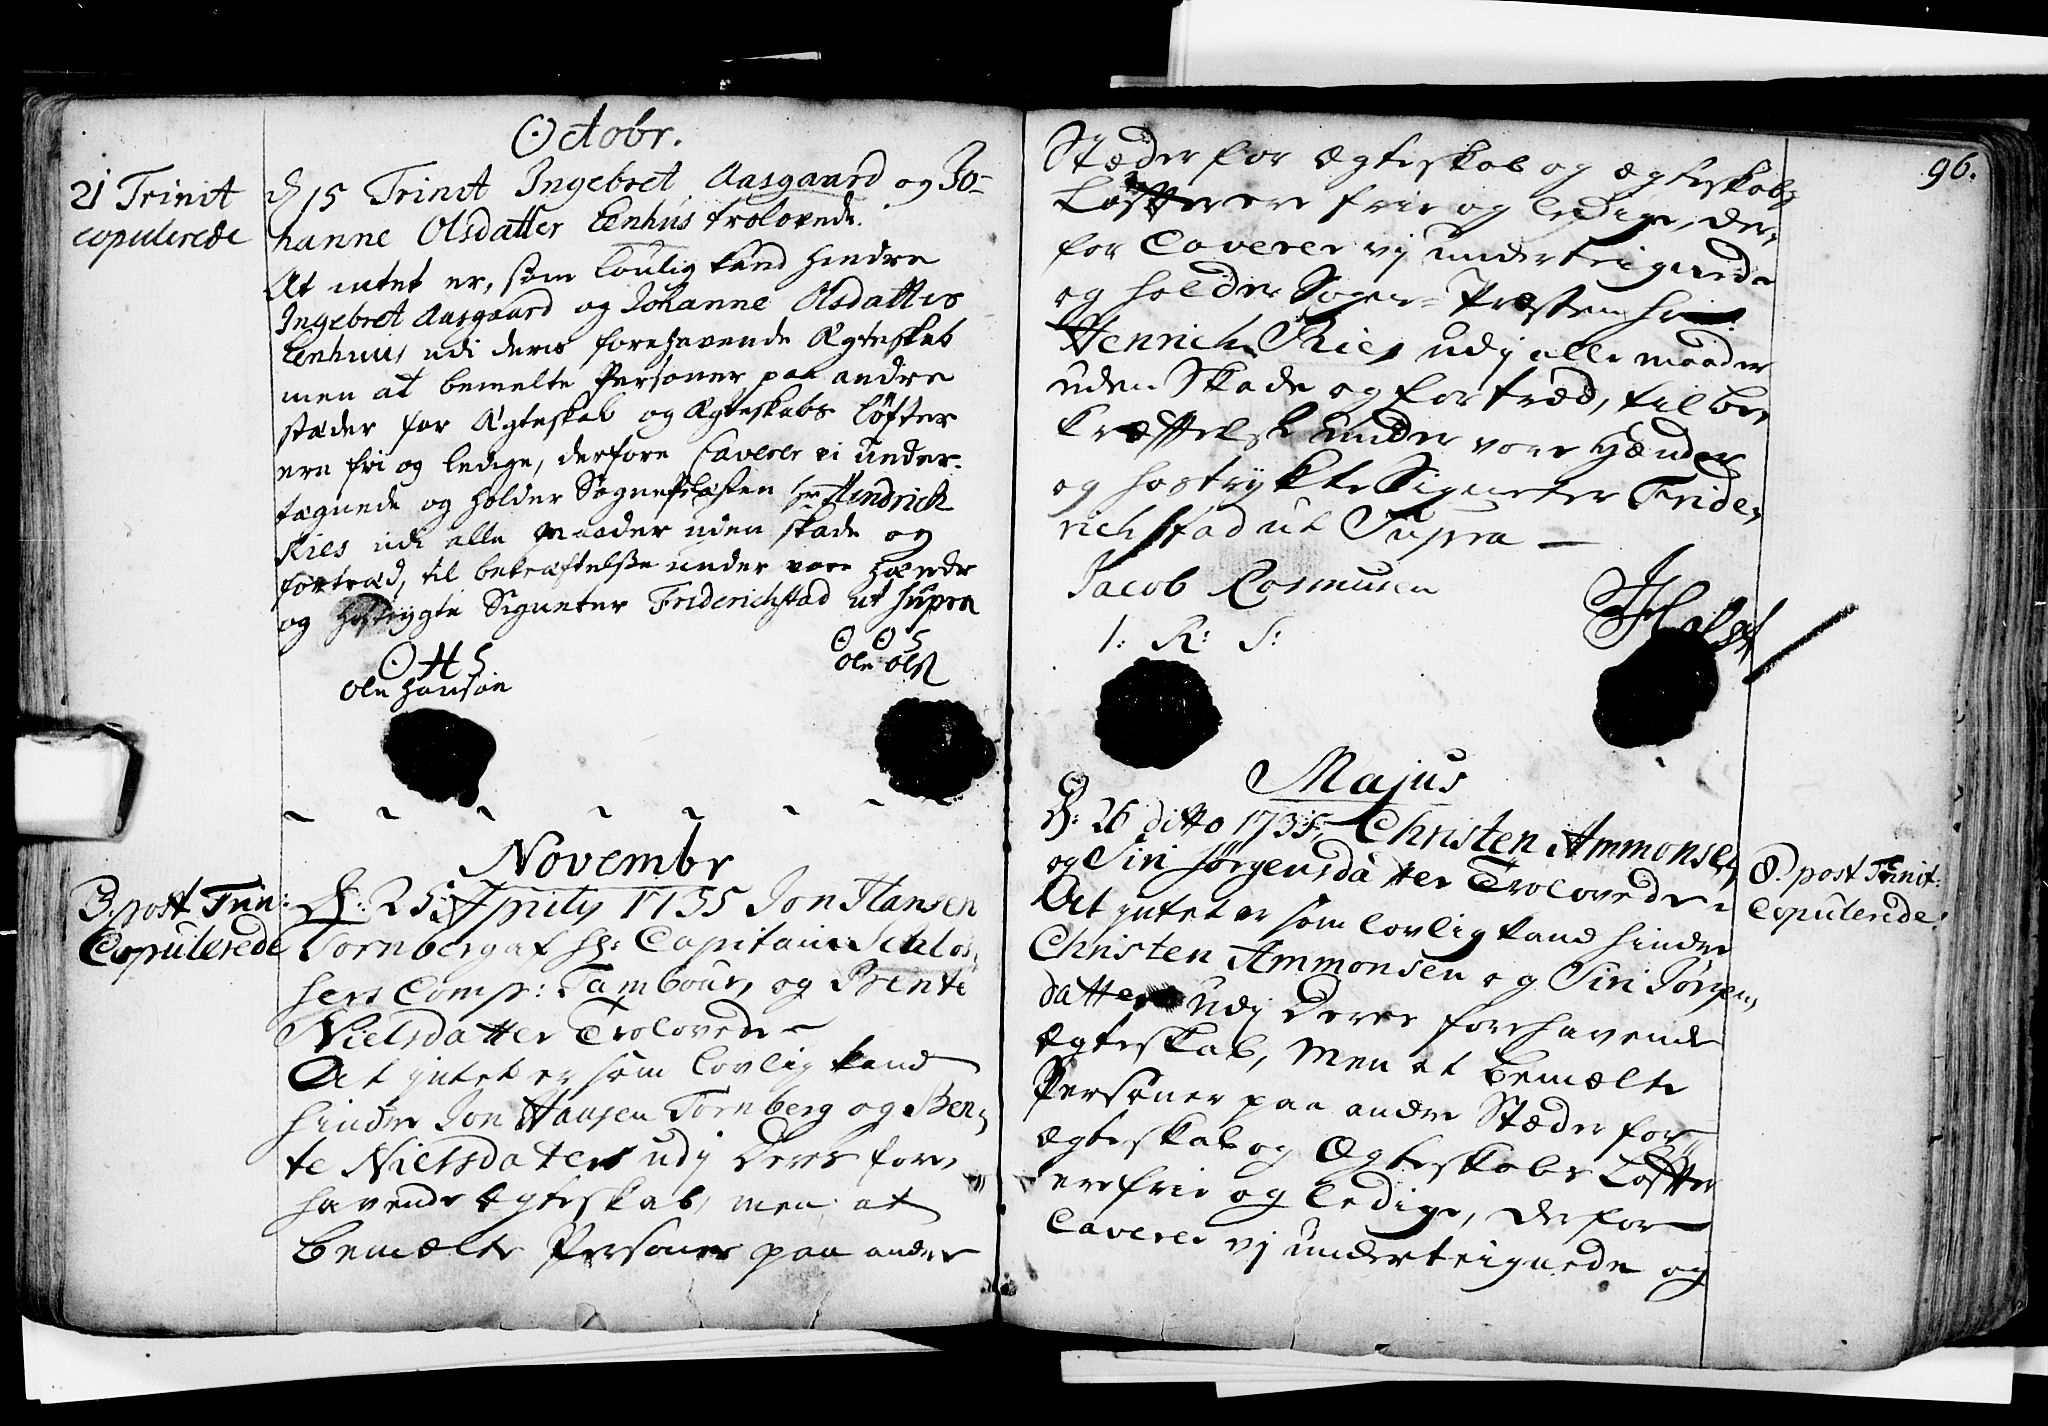 Octobr.
21 Trinit
copulerede
d 15 Trinit Ingebret Aasgaard og Jo-
hanne Olsdatter Eenhus trolovede.
At intet er, som loulig kand hindre
Ingebret Aasgaard og Johanne Olsdatter
Eenhuus udi deris forehavende Ægteskab
men at bemelte Personer paa andre
stæder for Ægteskab og Ægteskabs Løfter
ere fri og ledige, derfore Caverer vi under-
tægnede og holder Sognepræsten hr Hendrich
Ries udi alle maader uden skade og
fortræd, til bekræftelße under vore hænder
og hostrygte Signeter Friderichstad ut supra
OHS
Ole Hansøn
OOS
Ole Olß
Novembr
3. post Trin:
Copulerede
D: 25 Aprily 1735 Jon Hansen
Tornberg af Hr: Capitain
hers Comp: Tambour, og Bente
Nielsdatter Trolovede
At intet er som lovlig kand
hindre Jon Hansen Tornberg og Ben,
te Nielsdatter udj deres fore,
havende Ægteskab, men at
bemælte Personer paa andre
96.
Stæder for Ægteskab og Ægteskabs
Løffter ere frie og ledige, der,
for Caverer vj underteignede
og holder Sogne-Præsten hr
Henrich Ries udj alle maader
uden Skade og fortræd, til be,
kræfftelse under vore Hænder
og hostrykte Signeter Fride,
richstad ut Supra
Jacob Rasmusen
I: R: S:
Majus
D: 26 ditto 1735, Christen Ammonsen
og Siri Jørgensdatter Trolovede
At intet er som lovlig kand hindre
Christen Ammonsen og Siri Jørgens,
datter udj deres forehavende
Ægteskab, men at bemælte
Personer paa andre Stæder for
Ægteskab og Ægteskabs Løffter
ere frie og ledige, derfor
Caverer vj underteignede og
8. post Trinit:
Copulerede.